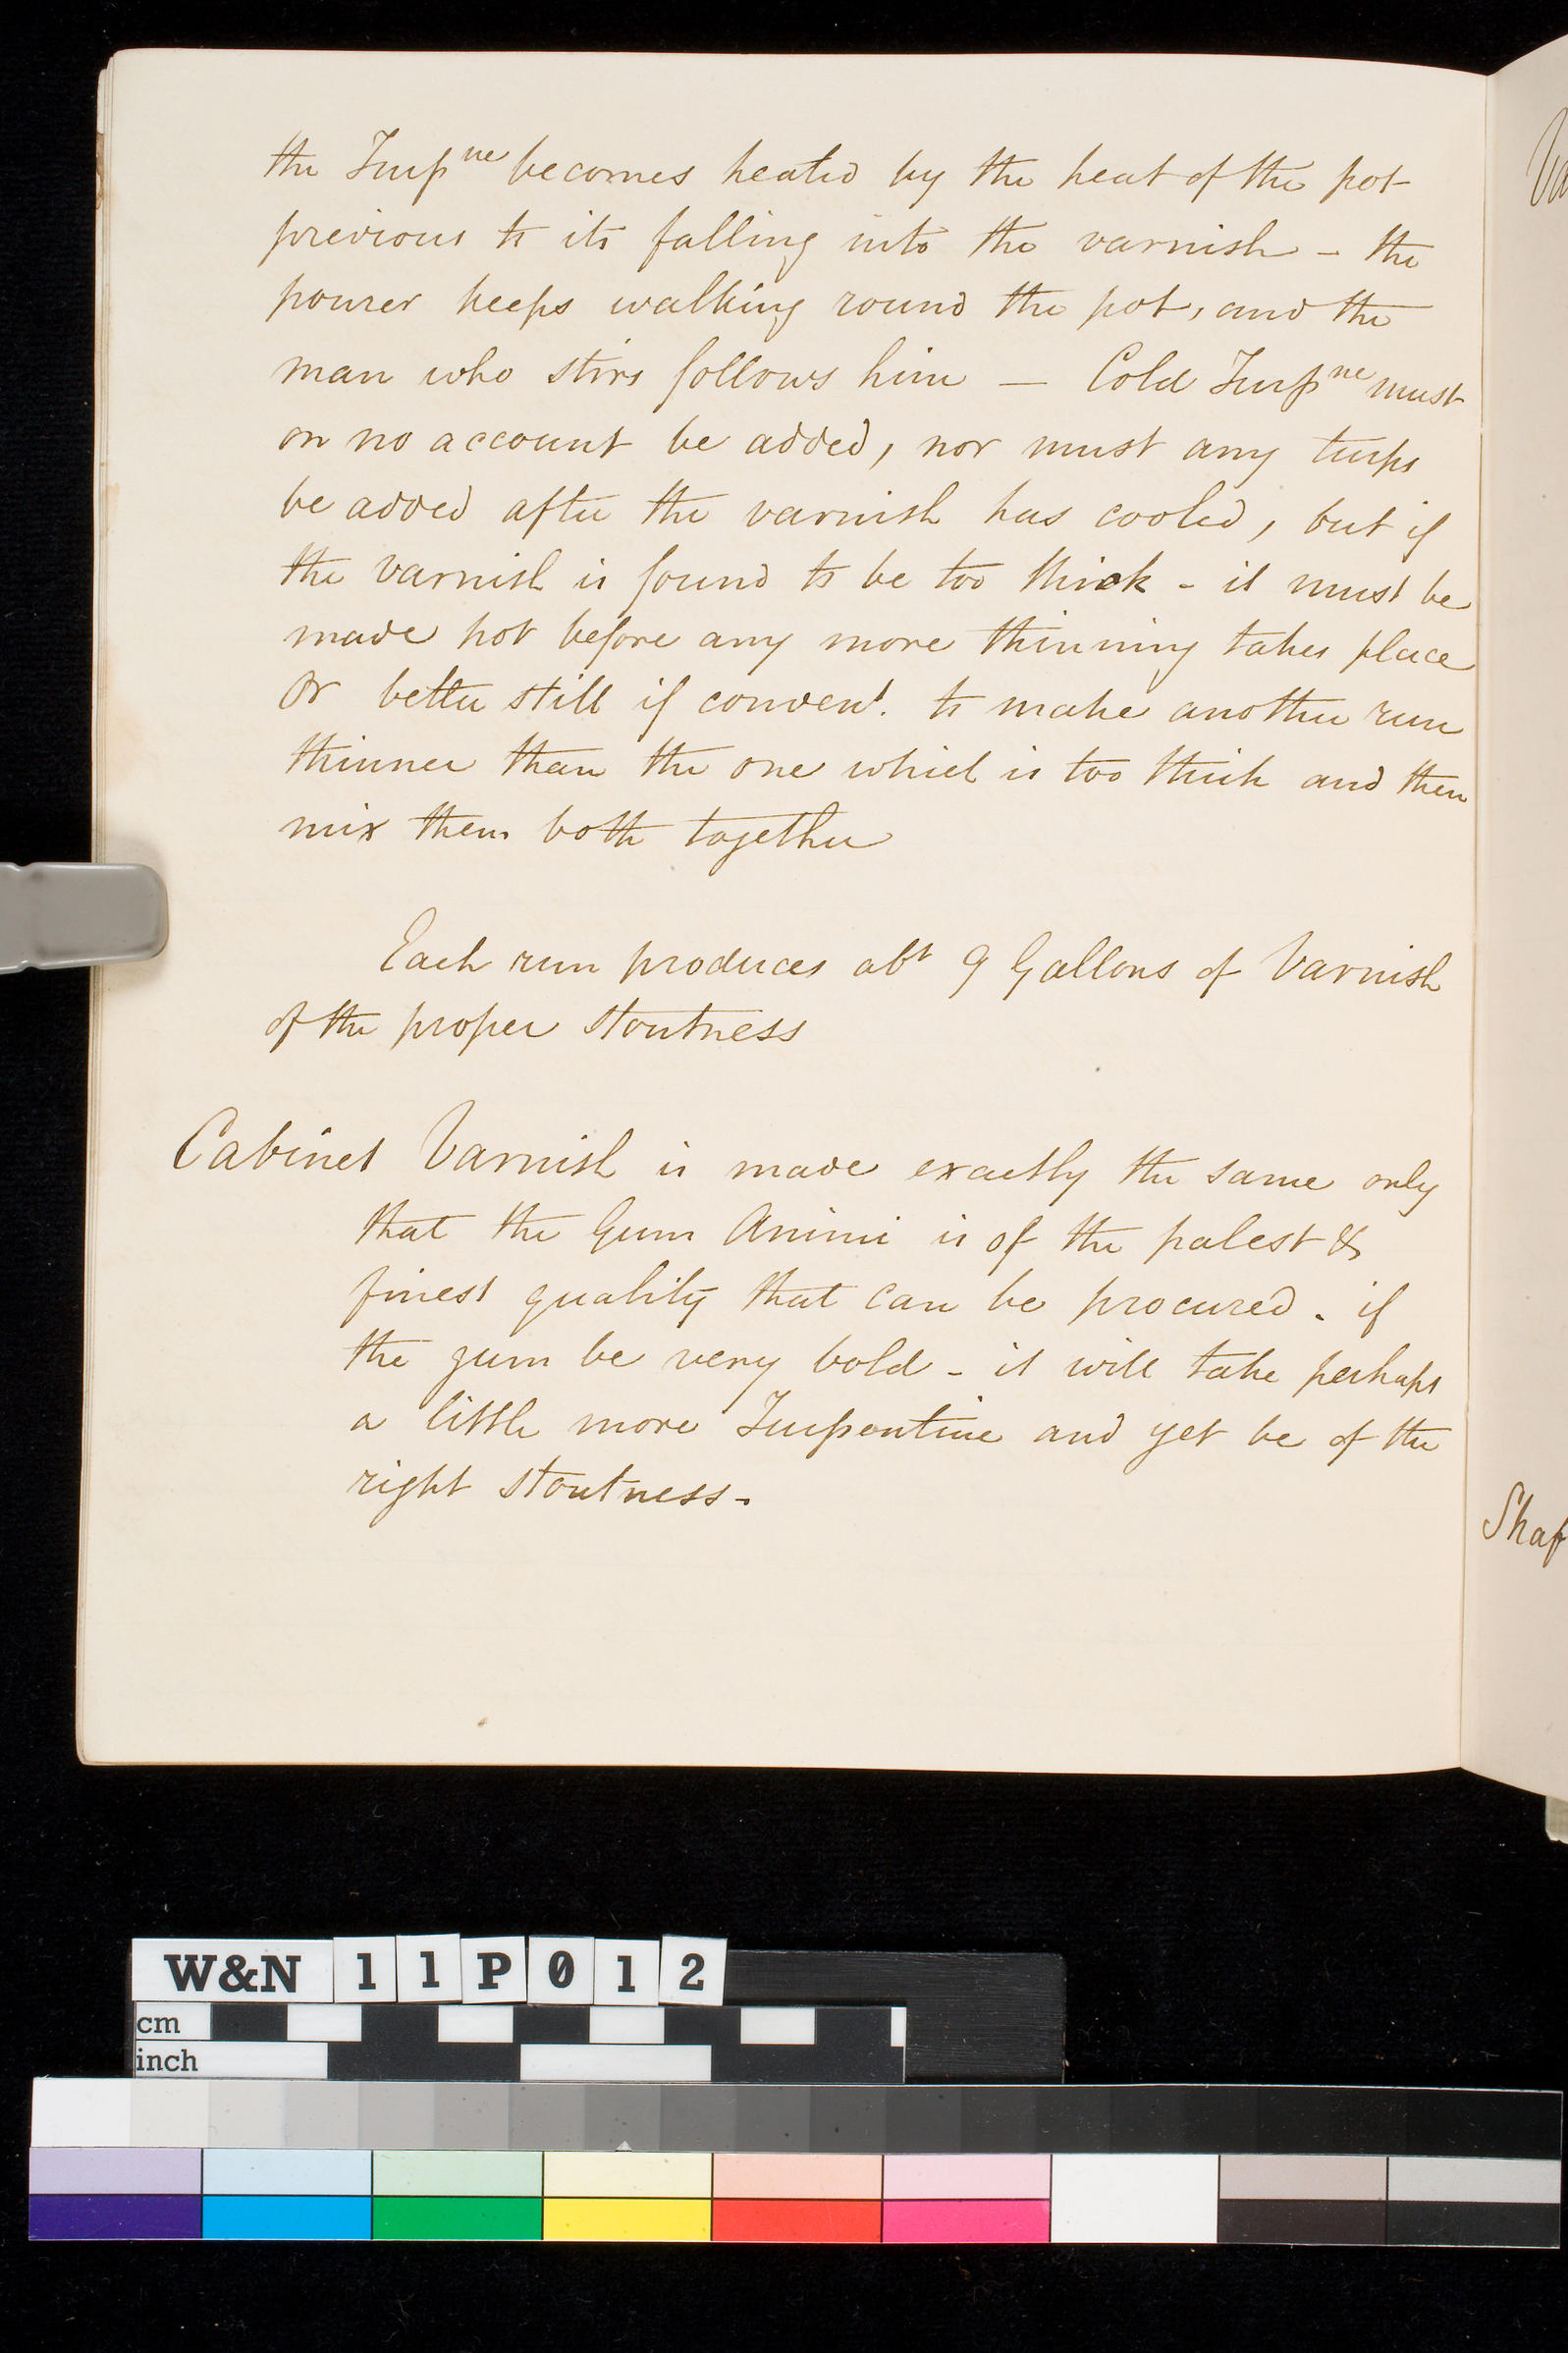 the Turpne becomes heated by the heat of the pot
previous to its falling into the varnish - the
pourer keeps walking round the pot, and the
man who stirs follows him — Cold Turpne must
on no account be added, nor must any turps
be added after the varnish has cooled, but if
the varnish is found to be too thick - it must be
made hot before any more thinning takes place
Or better still if convent. to make another run
thinner than the one which is too thick and then
mix them both together
Each run produces abt 9 Gallons of Varnish
of the proper stoutness
Cabinet Varnish is made exactly the same only
that the Gum Animi is of the palest &
finest quality that can be procured. if
the gum be very bold - it will take perhaps
a little more Turpentine and yet be of the
right stoutness-
Va
Shaf
W&N 11P012
cm
inch